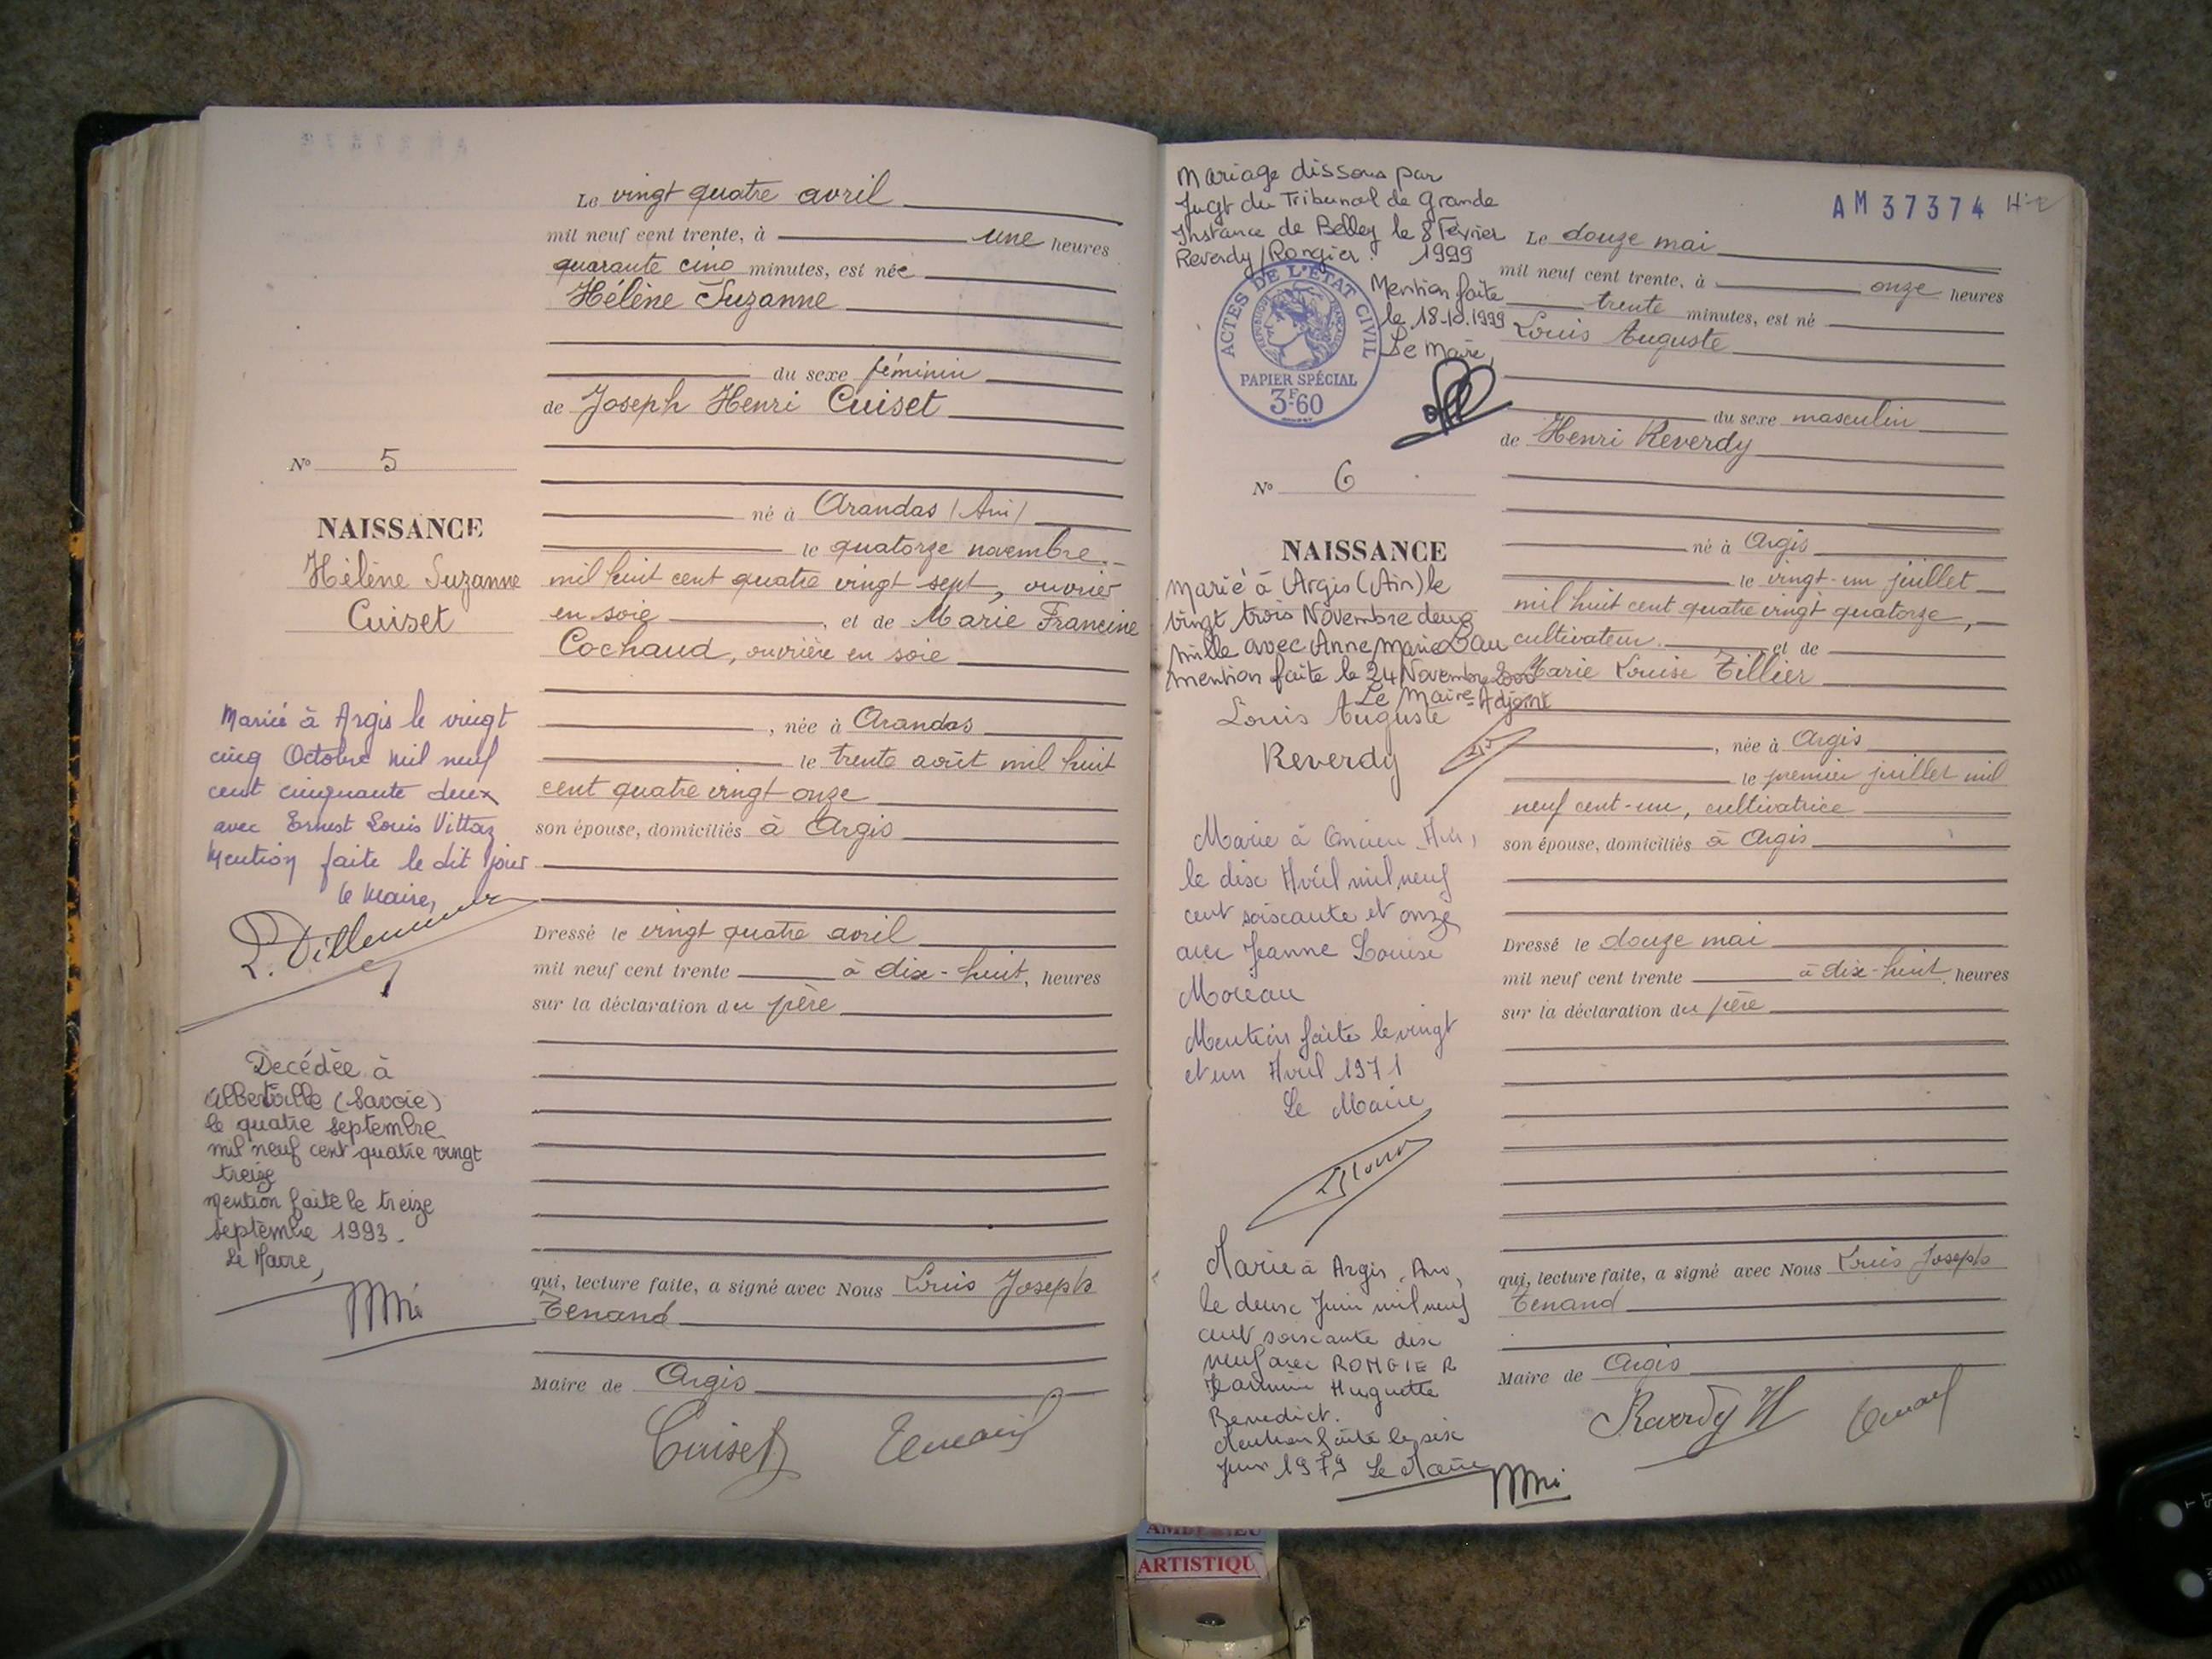 Le vingt quatre avril
mil neuf cent trente, à une heures
quarante cinq minutes, est née
Hélène Suzanne
du sexe féminin
de Joseph Henri Cuiset
N° 5
né à Arandas (Ain)
NAISSANCE
Hélène Suzanne
Cuiset
le quatorze novembre
mil huit cent quatre vingt sept, ouvrier
en soie, et de Marie Francine
Cochaud, ouvrière en soie
, née à Arandas
le trente août mil huit
cent quatre vingt onze
son épouse, domiciliés à Argis
Marié à Argis le vingt
cinq Octobre mil neuf
cent cinquante deux
avec Ernest Louis Vittaz
Mention faite le dit jour
le Maire,
Dressé le vingt quatre avril
mil neuf cent trente à dix-huit, heures
sur la déclaration du père
Décédée à
Albertville (Savoie)
le quatre septembre
mil neuf cent quatre vingt
treize
mention faite le treize
septembre 1993.
Le Maire,
qui, lecture faite, a signé avec Nous Louis Joseph
Tenand
Maire de Argis
Cuiset Tenand
Mariage dissous par
Jugt du Tribunal de Grande
Instance de Belley le 8 Février
Reverdy/Rongier. 1999
Mention faite
le 18-10.1999
Le Maire,
ACTES DE L'ÉTAT CIVIL
RÉPUBLIQUE FRANÇAISE
PAPIER SPÉCIAL
3F60
AM 37374
Le douze mai
mil neuf cent trente, à onze heures
trente minutes, est né
Louis Auguste
du sexe masculin
de Henri Reverdy
N° 6
né à Argis
NAISSANCE
le vingt-un juillet
mil huit cent quatre vingt quatorze,
cultivateur. et de
Marie Louise Tillier
, née à Argis
le premier juillet mil
neuf cent-un, cultivatrice
son épouse, domiciliés à Argis
marié à Argis (Ain) le
vingt trois Novembre deux
mille avec Anne Marie
mention faite le 24 Novembre
Le Maire-Adjoint
Louis Auguste
Reverdy
Marié à
le dix Avril mil neuf
cent soixante et onze
avec Jeanne Louise
Moreau
Mention faite le vingt
et un Avril 1971
Le Maire
Dressé le douze mai
mil neuf cent trente à dix-huit, heures
sur la déclaration du père
Marié à Argis, Ain,
le deux Juin mil neuf
cent soixante dix
neuf avec RONGIER
Huguette
Benedict.
Mention faite le six
Juin 1979 Le Maire
qui, lecture faite, a signé avec Nous Louis Joseph
Tenand
Maire de Argis
Reverdy H Tenand
ARTISTIQU